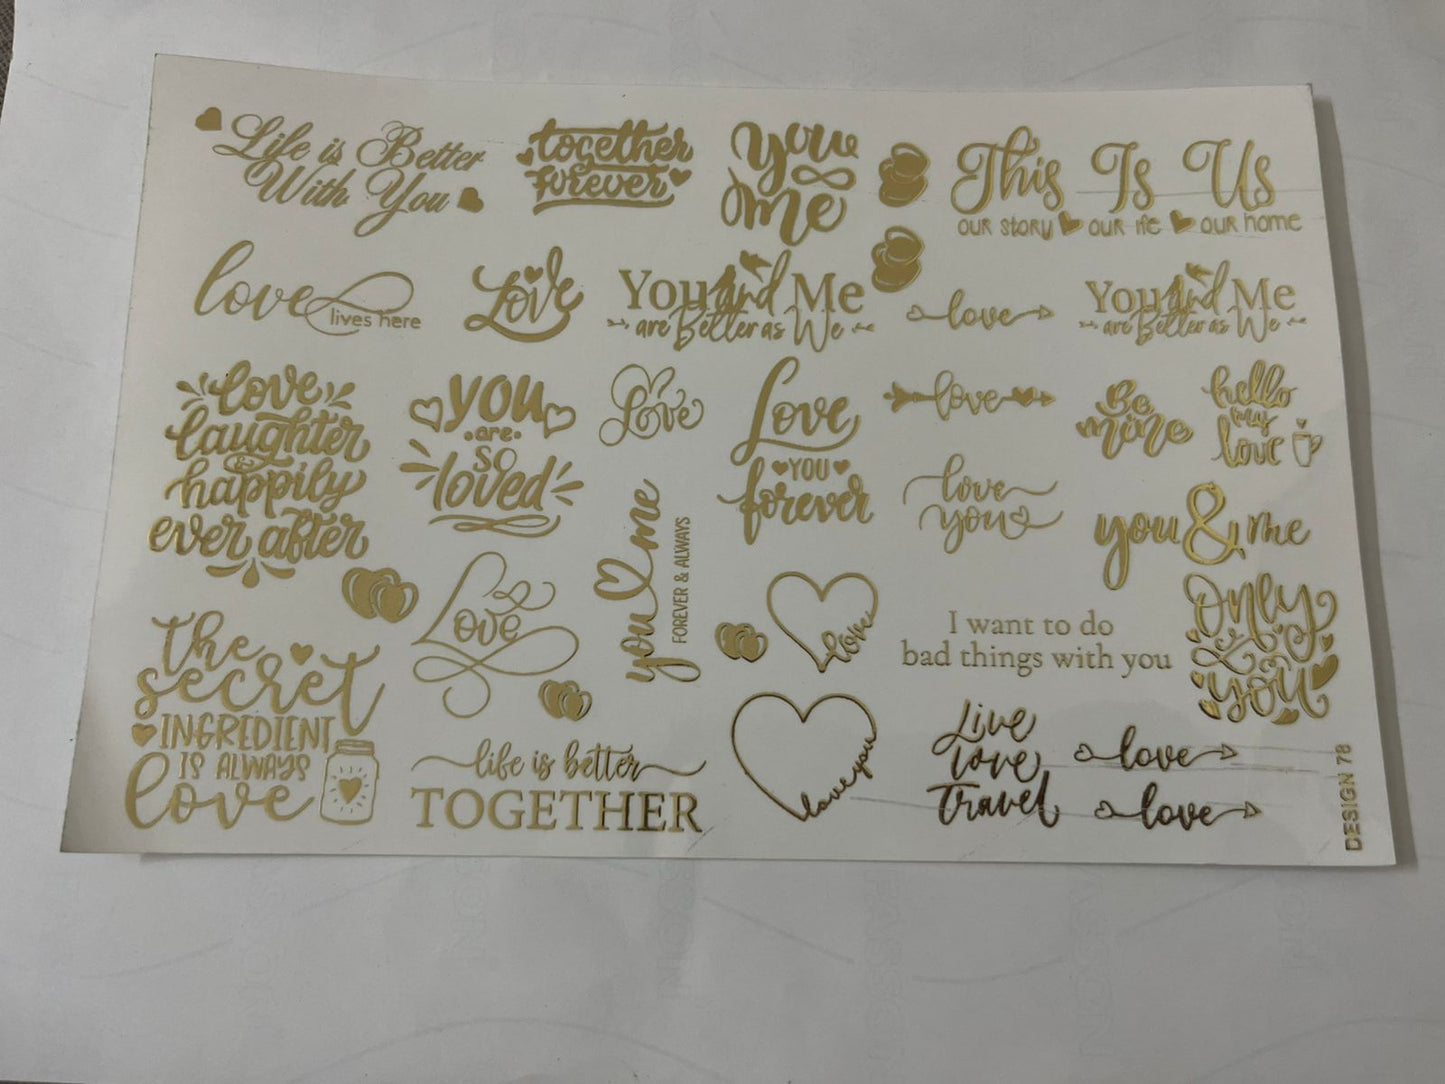 Life is Better
With You
together
forever
you
me
This Is Us
our story our life our home
love
lives here
Love
You and Me
are Better as We
love
You and Me
are Better as We
love
laughter
&
happily
ever after
you
are
so
loved
Love
Love
YOU
forever
love
Be
mine
hello
my
love
love
you
you & me
you me
FOREVER & ALWAYS
Love
love
I want to do
bad things with you
Only
you
the
secret
INGREDIENT
IS ALWAYS
love
life is better
TOGETHER
love you
Live
love
Travel
love
love
DESIGN 78